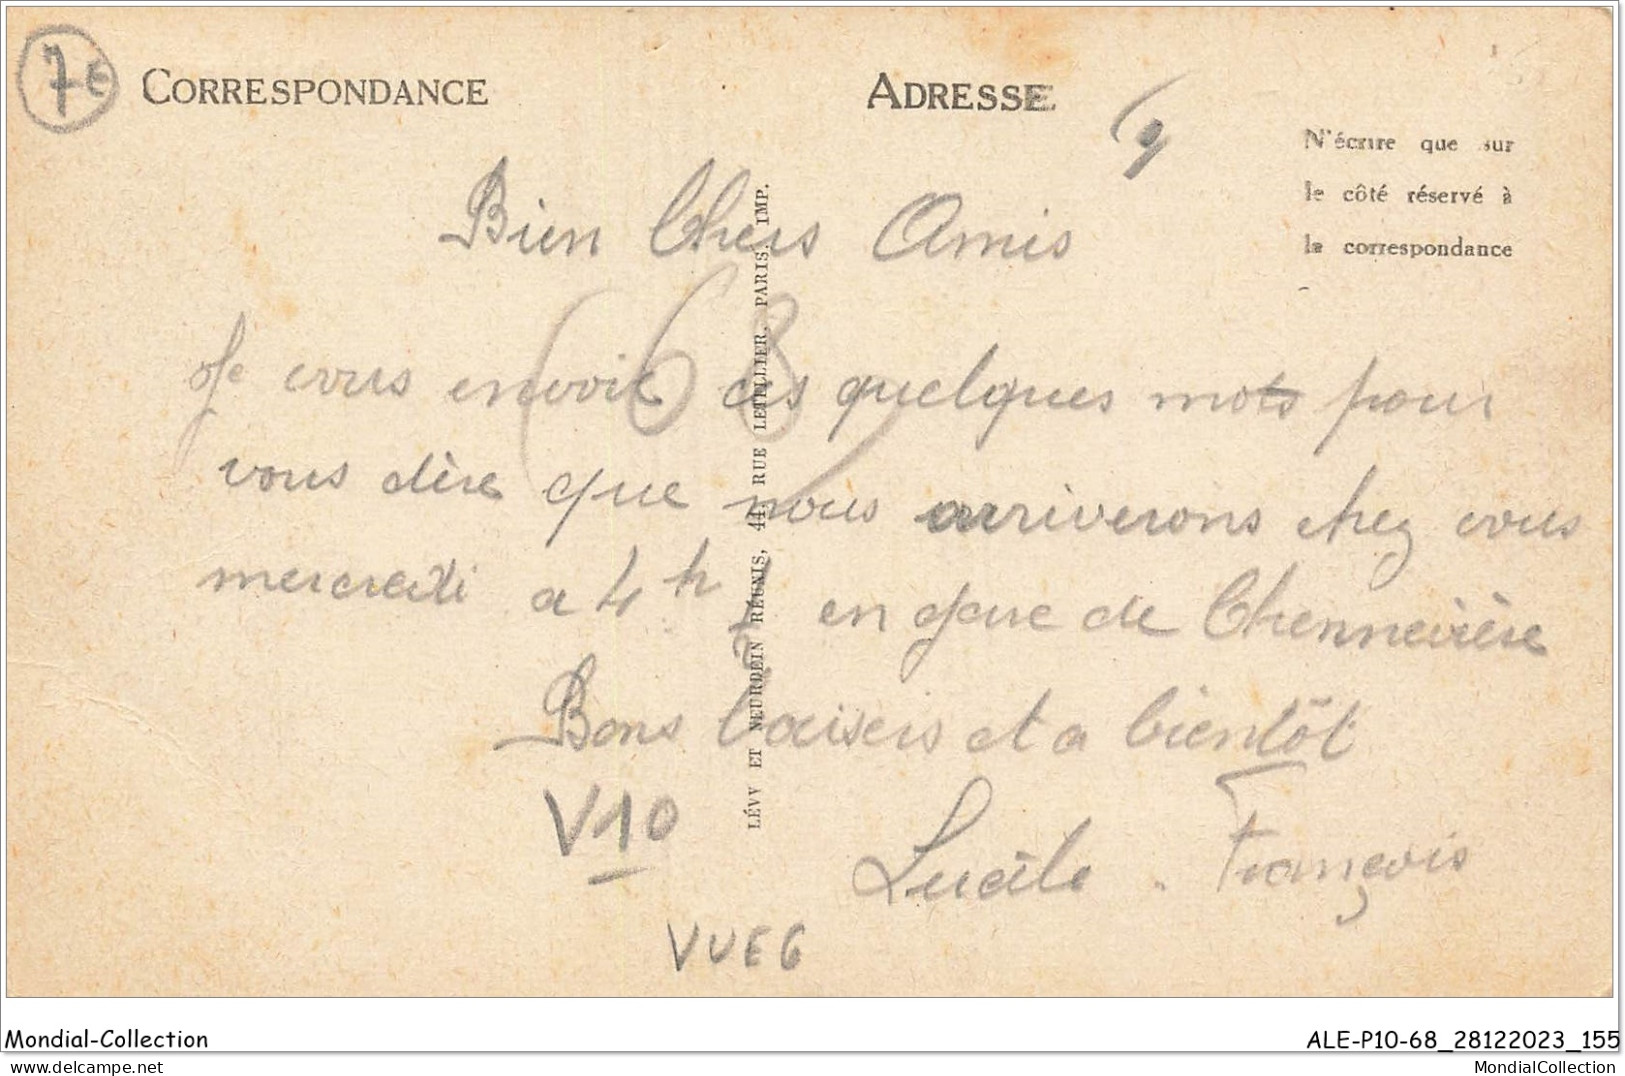 7€
CORRESPONDANCE
ADRESSE
N'écrire que sur
le côté réservé à
la correspondance
Bien Chers Amis
(68)
Je vous envoie ces quelques mots pour
vous dire que nous arriverons chez vous
mercredi a 4h en gare de Chennevière
Bons baisers et a bientôt
Lucile. François
V10
VUE6
LÉVY ET NEURDEIN RÉUNIS, 44, RUE LETELLIER, PARIS. IMP.
Mondial-Collection
ALE-P10-68_28122023_155
delcampe.net
MondialCollection